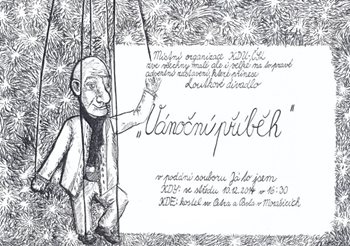 Místní organizace KDU-ČSL
zve všechny malé ale i velké na to pravé
adventní nastavení, které přinese
Loutkové divadlo
„Vánoční příběh“
v podání souboru Já to jsem
KDY: ve středu 10.12.2014 v 16:30
KDE: kostel sv. Petra a Pavla v